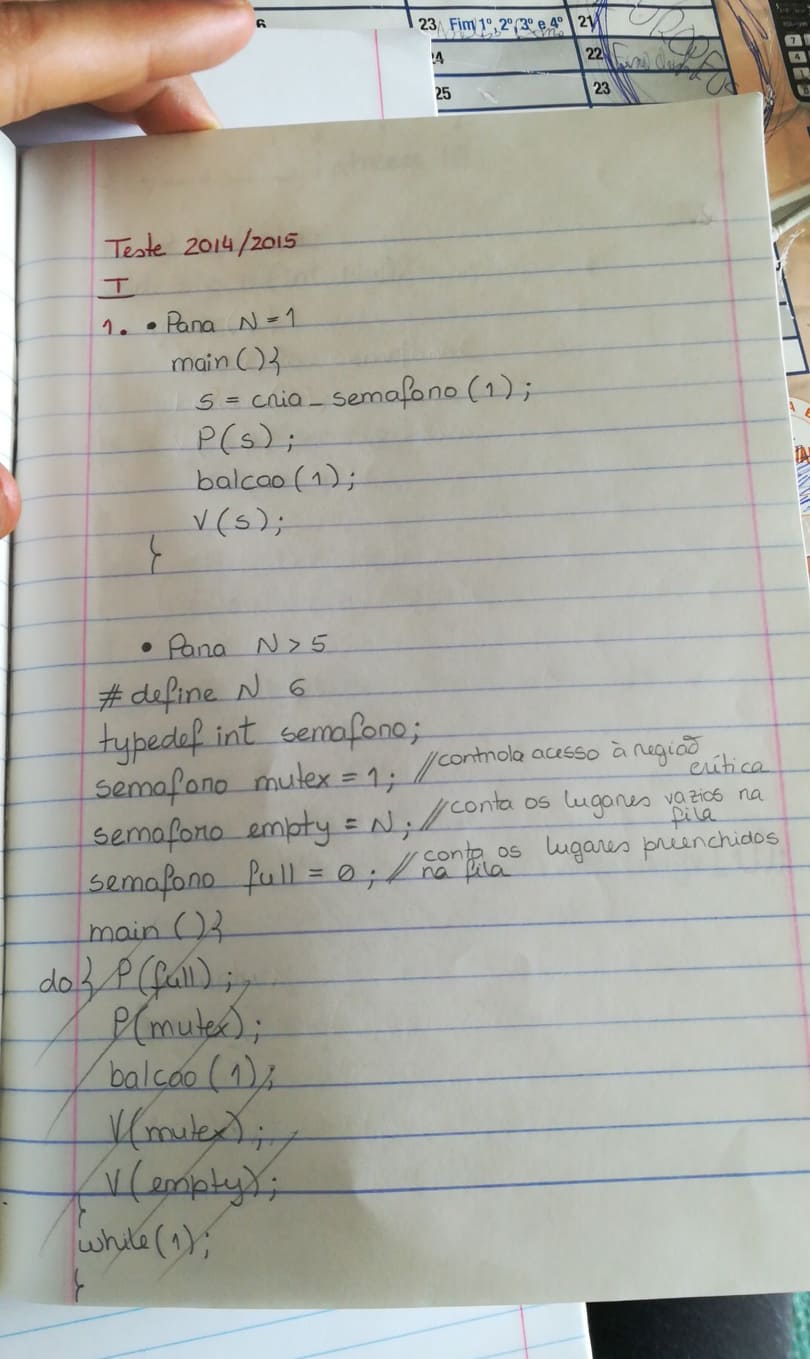 6
23 Fim 1º, 2º, 3º e 4º
21
4
22
25
23
Teste 2014/2015
I
1. • Para N=1
main(){
s = cria_semaforo(1);
P(s);
balcao(1);
V(s);
}
• Para N>5
#define N 6
typedef int semaforo;
semaforo mutex = 1; //controla acesso à região
crítica
semaforo empty = N; //conta os lugares vazios na
fila
semaforo full = 0; //conta os lugares preenchidos
na fila
main(){
do{ P(full);
P(mutex);
balcao(1);
V(mutex);
V(empty);
}
while(1);
}